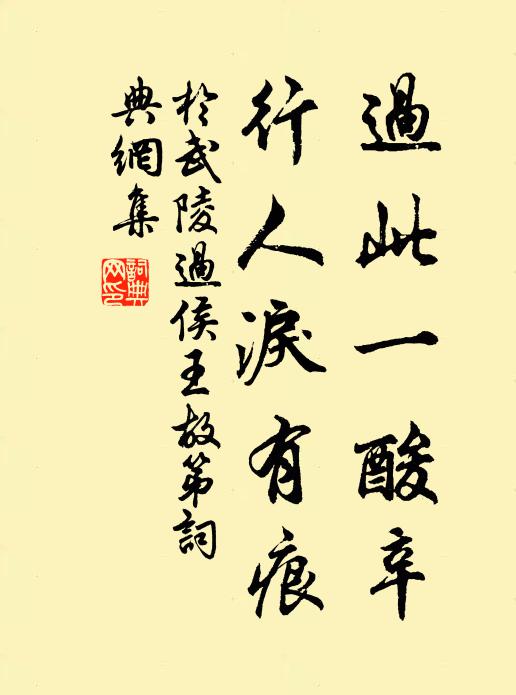 過此一酸辛
行人淚有痕
於武陵過侯王故第詞
典網集
詞典
网印